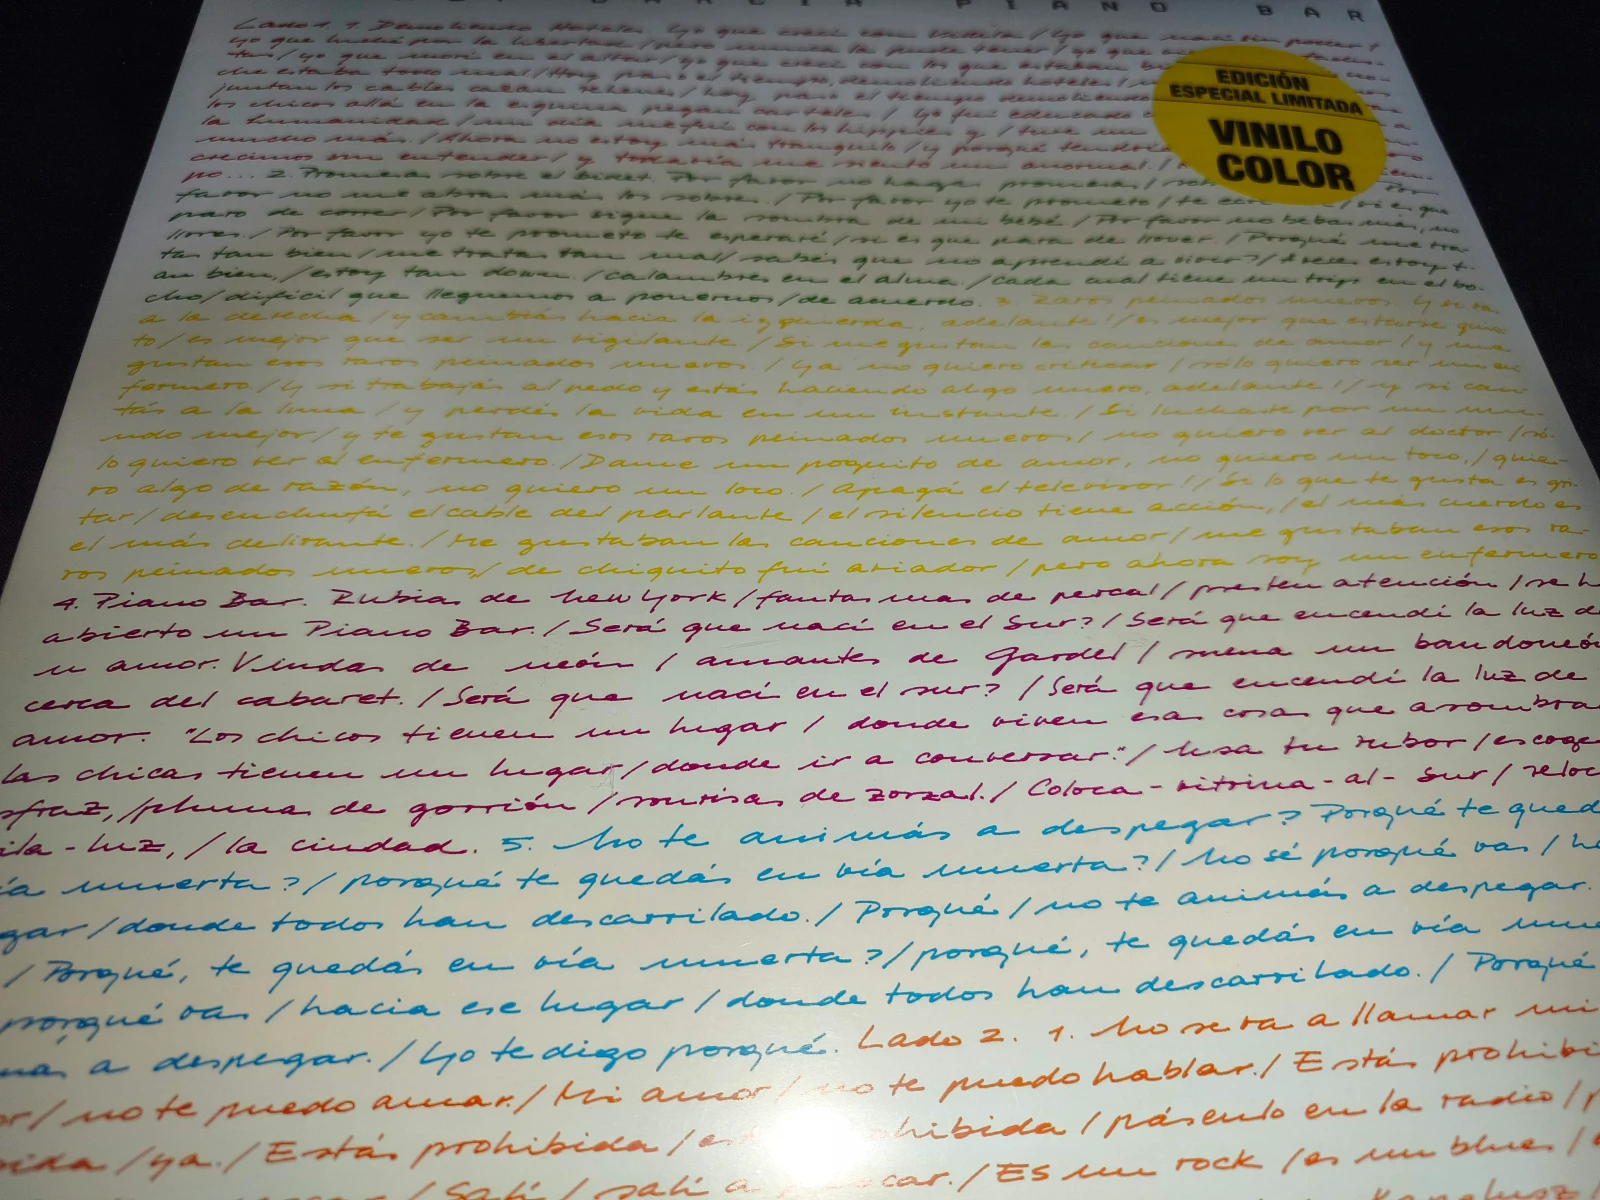 GARCIA PIANO BAR
EDICIÓN
ESPECIAL LIMITADA
VINILO
COLOR
Lado 1. 1. Demoliendo Hoteles. Yo que crecí con Videla / Yo que nací sin poder /
yo que luché por la libertad / pero nunca la pude tener / yo que
/ yo que morí en el altar / yo que crecí con los que estaban
che estaba todo mal / Hoy paso el tiempo, demoliendo hoteles /
juntan los cables cazan rehenes / hoy paso el tiempo demoliendo
los chicos allá en la esquina pegan carteles / Yo fui educado
la humanidad / un día me fui con los hippies y / tuve un
mucho más. / Ahora no estoy más tranquilo / y porqué tendría
crecimos sin entender / y todavía me siento un anormal. /
po... 2. Promesas sobre el bidet. Por favor no hagas promesas / Por
favor no me abras más los sobres. / Por favor yo te prometo / te / si es que
paro de correr / Por favor sigue la sombra de mi bebé / Por favor no bebas más, no
llores. / Por favor yo te prometo te esperaré / si es que para de llover. / Porqué me tra-
tas tan bien / me tratas tan mal / sabés que no aprendí a vivir? / A veces estoy t-
an bien, / estoy tan down. / calambres en el alma. / cada cual tiene un trip en el bo-
cho / difícil que lleguemos a ponernos / de acuerdo. 3 Raros peinados nuevos. Y si va
a la derecha / y cambiás hacia la izquierda, adelante! / es mejor que estarse quie
to / es mejor que ser un vigilante / Si me gustan las canciones de amor / y me
gustan esos raros peinados nuevos. / Ya no quiero criticar / sólo quiero ser un en
fermero. / Y si trabajás al pedo y estás haciendo algo nuevo, adelante! / y si can
tás a la luna / y perdés la vida en un instante. / Si luchaste por un mu-
ndo mejor / y te gustan esos raros peinados nuevos / no quiero ver al doctor / só-
lo quiero ver al enfermero. / Dame un poquito de amor, no quiero un toco, / quie-
ro algo de razón, no quiero un loco. / Apagá el televisor! / Si lo que te gusta es gri-
tar / desenchufá el cable del parlante / el silencio tiene acción, / el más cuerdo es
el más delirante. / Me gustaban las canciones de amor / me gustaban esos ra-
ros peinados nuevos, / de chiquito fui aviador / pero ahora soy un enfermero
4. Piano Bar. Rubias de New York / fantasmas de percal / presten atención / se h
abierto un Piano Bar. / Será que nací en el Sur? / Será que encendí la luz d
u amor. Viudas de neón / amantes de Gardel / suena un bandoneó
cerca del cabaret. / Será que nací en el sur? / Será que encendí la luz de
amor. "Los chicos tienen un lugar / donde viven esas cosas que asombra
las chicas tienen un lugar / donde ir a conversar." / Usa tu rubor / escoge
sfraz, / pluma de gorrión / sonrisas de zorzal. / Coloca-vitrina-al-Sur / reloc
ila-luz, / la ciudad. 5. No te animás a despegar? Porqué te qued
ía muerta? / porqué te quedás en vía muerta? / No sé porqué vas / ha
gar / donde todos han descarrilado. / Porqué / no te animás a despegar.
/ Porqué, te quedás en vía muerta? / porqué, te quedás en vía mue
porqué vas / hacia ese lugar / donde todos han descarrilado. / Porqué
mas a despegar. / Yo te digo porqué. Lado 2. 1. No se va a llamar mi
or / no te puedo amar. / Mi amor / no te puedo hablar. / Estás prohibi
bida / ya. / Estás prohibida / es hibida / pásenlo en la radio /
/ Salí / salí a car. / Es un rock / es un blues /